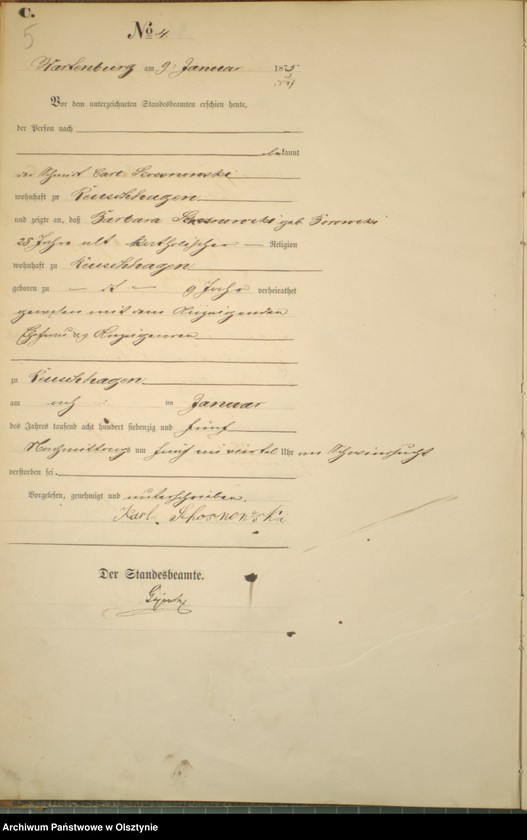 C.
5
No 4
Wartenburg am 9. Januar 1875
Vor dem unterzeichneten Standesbeamten erschien heute,
der Person nach
bekannt
der Schmidt Carl
wohnhaft zu Reuschhagen
und zeigte an, daß Barbara geb. Borowski
25 Jahre alt katholischer Religion
wohnhaft zu Reuschhagen
geboren zu 9 Jahr verheirathet
gewesen mit dem Anzeigenden
Ehefrau des Anzeigenden
zu Reuschhagen
am ten Januar
des Jahres tausend acht hundert siebenzig und fünf
Nachmittags um fünf ein viertel Uhr an Schwindsucht
verstorben sei.
Vorgelesen, genehmigt und unterschrieben.
Karl
Der Standesbeamte.
Archiwum Państwowe w Olsztynie